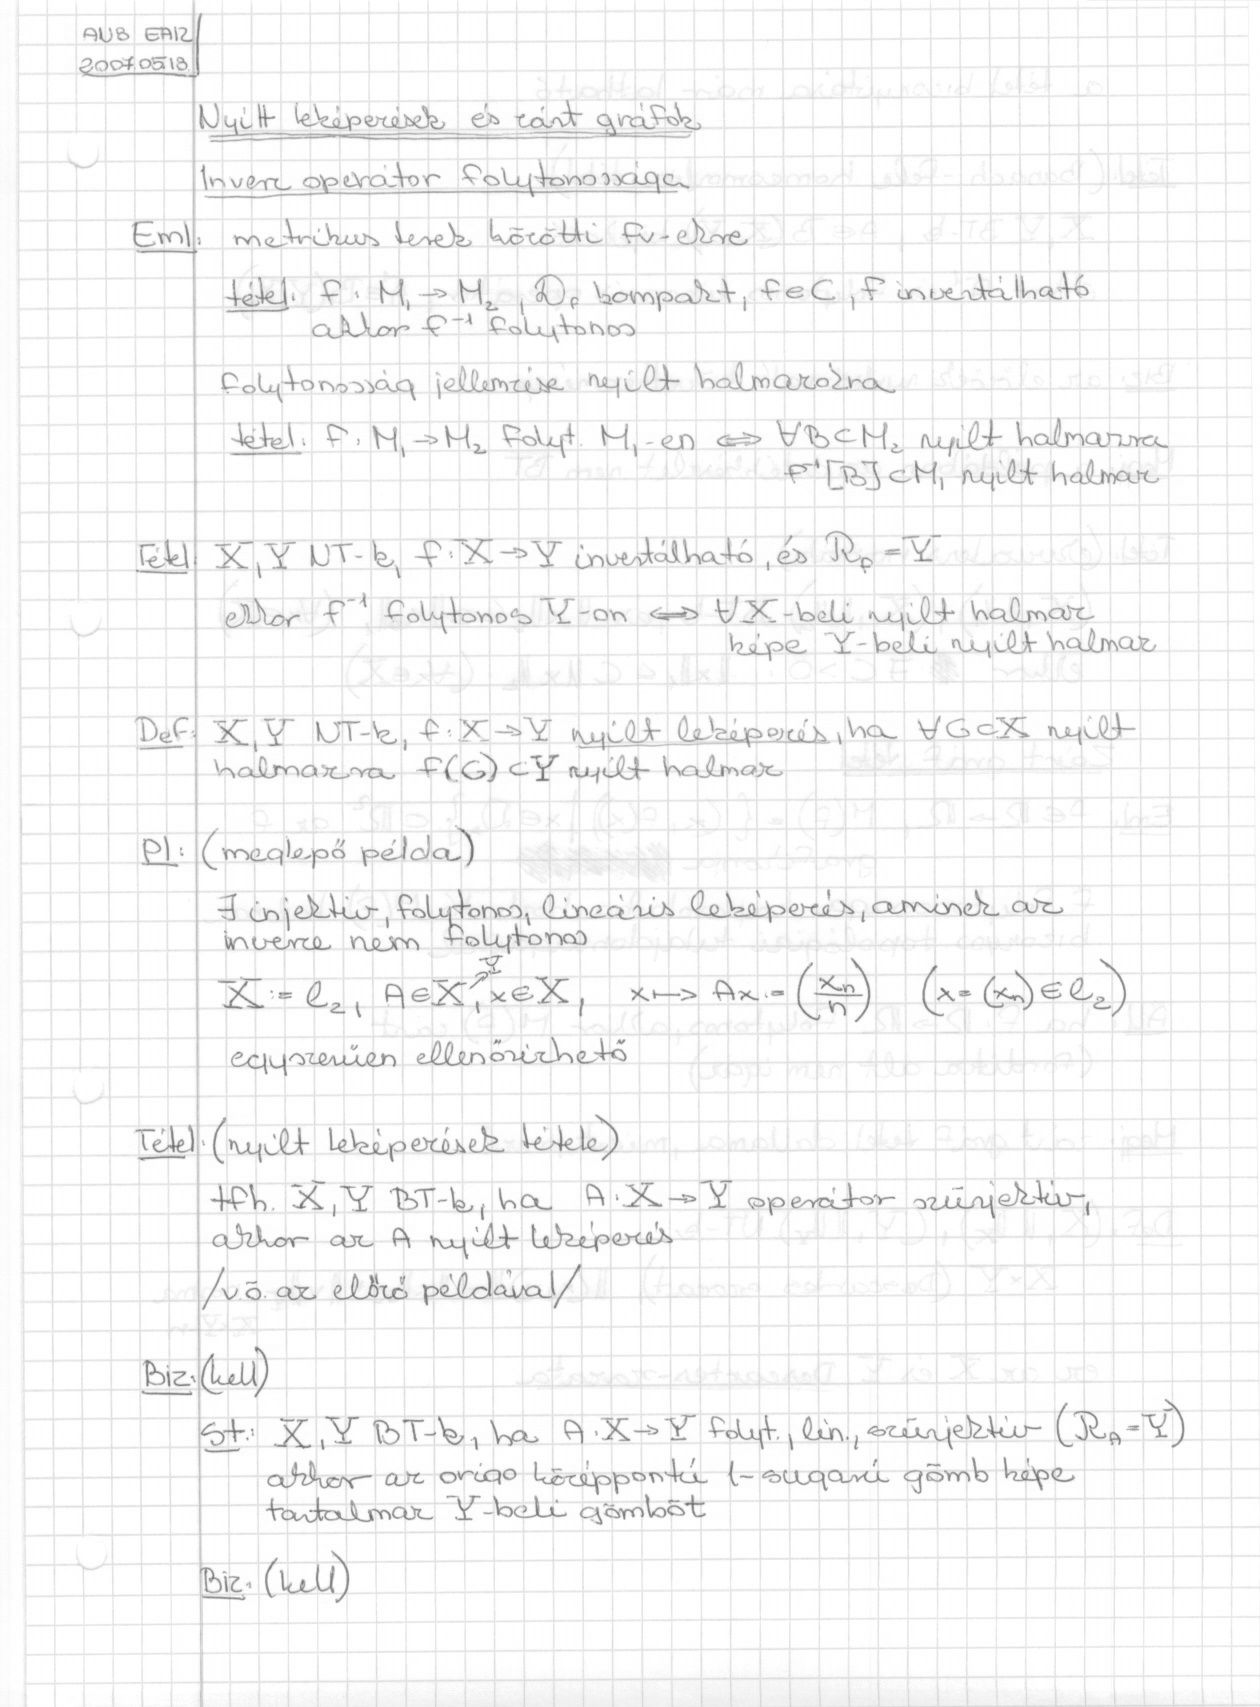 ANB EA12
2007.05.18.
Nyílt leképezések és zárt gráfok
Inverz operátor folytonossága
Eml: metrikus terek közötti fv-ekre
tétel: f: M₁ → M₂, D_f kompakt, f∈C, f invertálható
akkor f⁻¹ folytonos
folytonosság jellemzése nyílt halmazokra
tétel: f: M₁ → M₂ folyt. M₁-en ⇔ ∀B⊂M₂ nyílt halmazra
f⁻¹[B]⊂M₁ nyílt halmaz
Tétel: X, Y NT-k, f: X → Y invertálható, és R_f = Y
ekkor f⁻¹ folytonos Y-on ⇔ ∀X-beli nyílt halmaz
képe Y-beli nyílt halmaz
Def: X, Y NT-k, f: X → Y nyílt leképezés, ha ∀G⊂X nyílt
halmazra f(G)⊂Y nyílt halmaz
Pl: (meglepő példa)
∃ injektív, folytonos, lineáris leképezés, aminek az
inverze nem folytonos
X := l₂, A∈X→Y, x∈X, x ↦ Ax := (xₙ/n) (x = (xₙ) ∈ l₂)
egyszerűen ellenőrizhető
Tétel: (nyílt leképezések tétele)
tfh. X, Y BT-k, ha A: X → Y operátor szürjektív,
akkor az A nyílt leképezés
/v.ö. az előző példával/
Biz: (kell)
St.: X, Y BT-k, ha A: X → Y folyt., lin., szürjektív (R_A = Y)
akkor az origo középpontú 1-sugarú gömb képe
tartalmaz Y-beli gömböt
Biz: (kell)